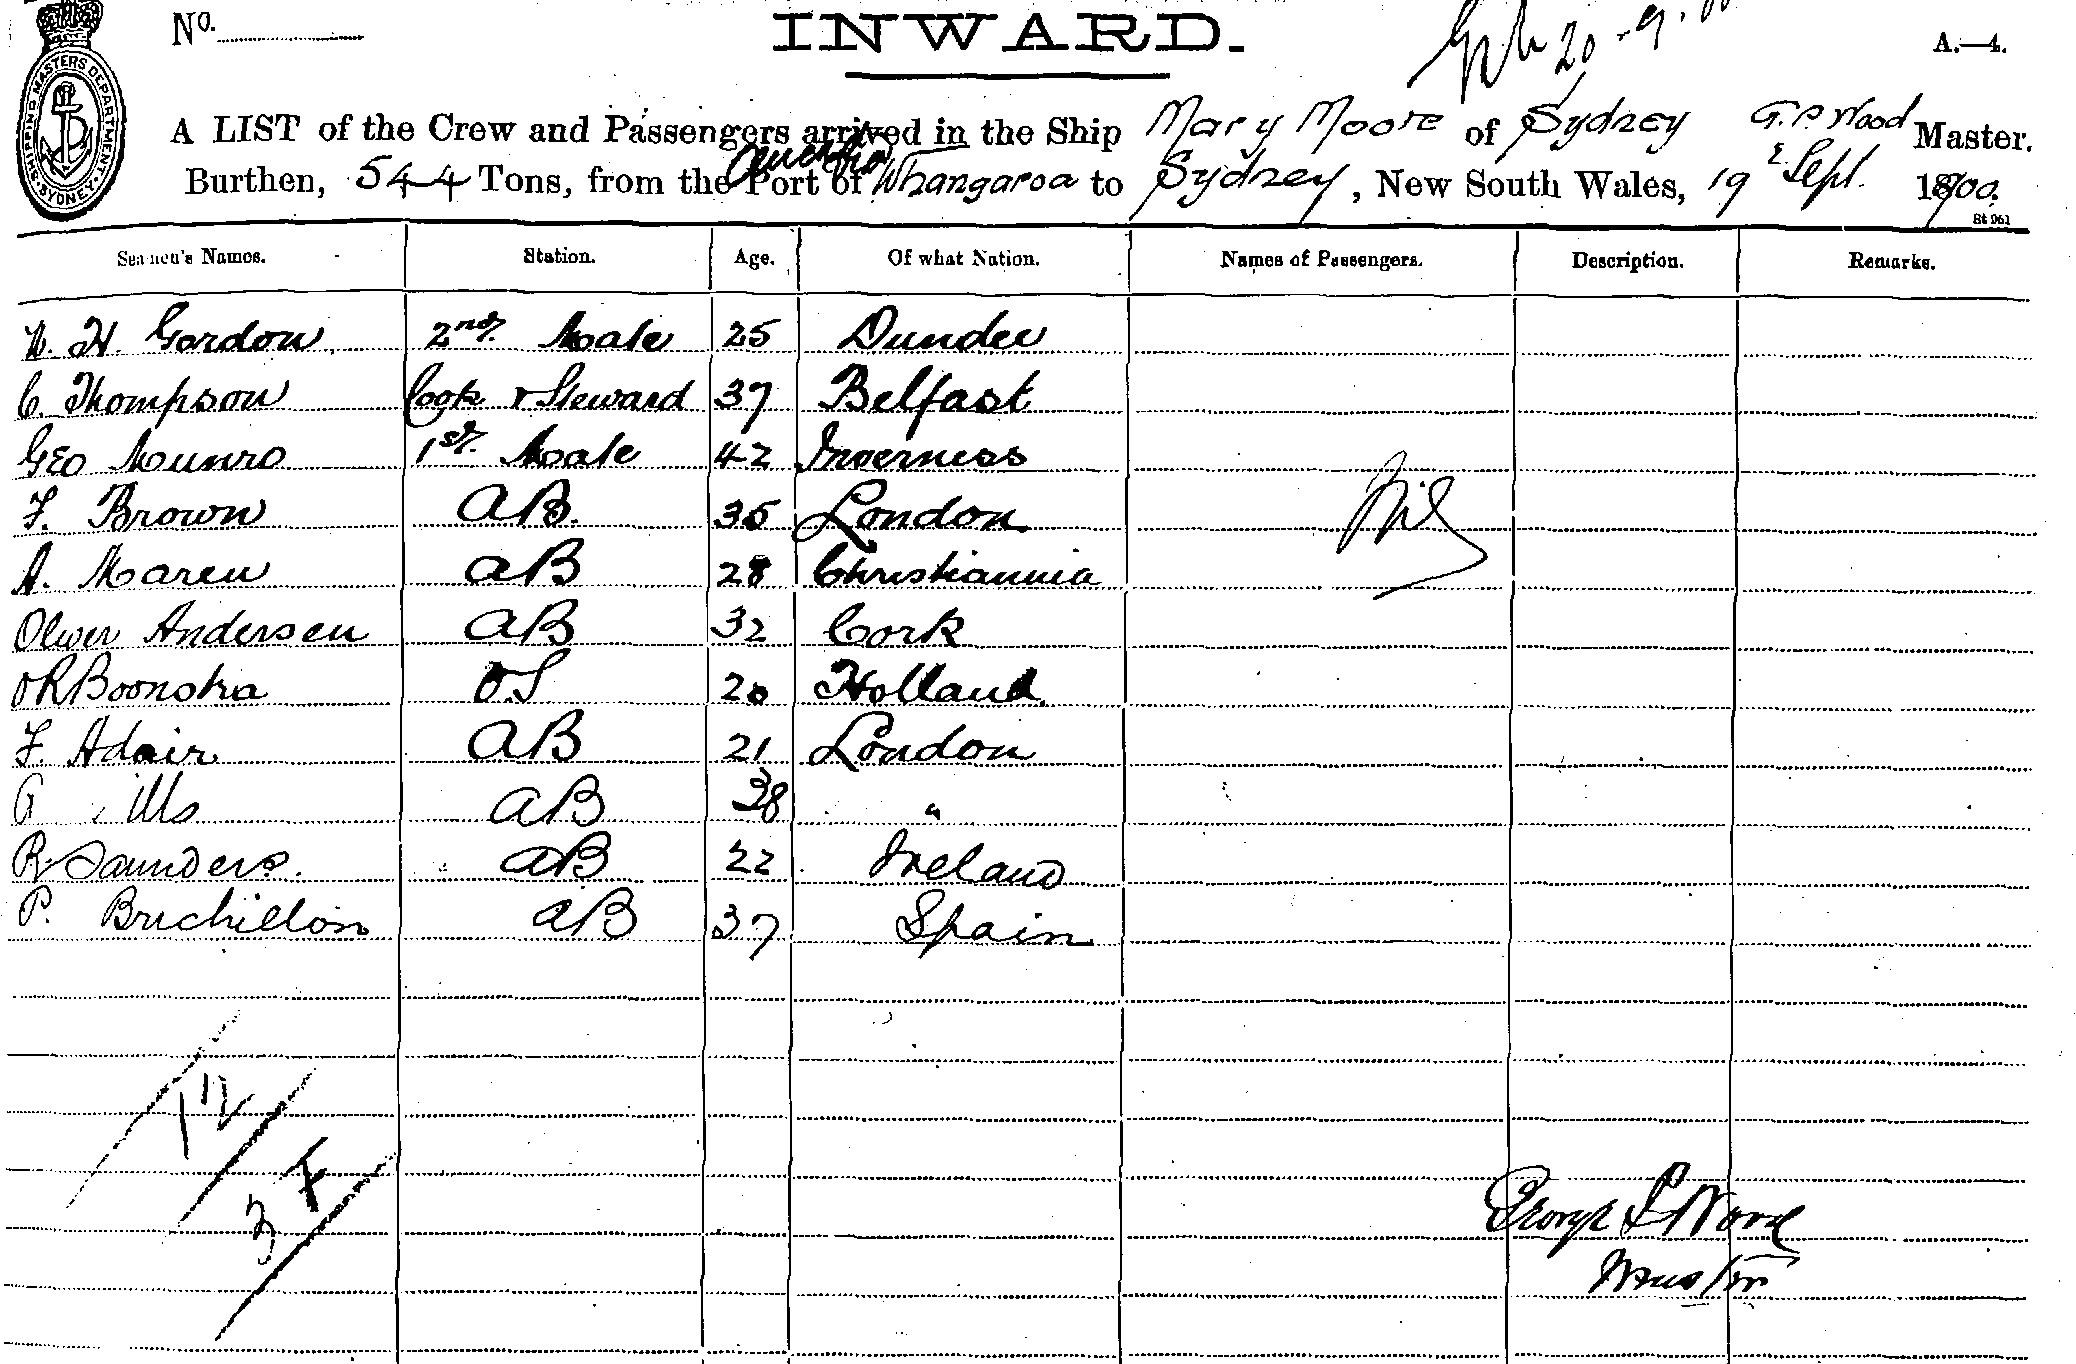 No. INWARD. 20-9- A.—4.
SHIPPING MASTERS DEPARTMENT SYDNEY
A LIST of the Crew and Passengers arrived in the Ship Mary Moore of Sydney G. P. Wood Master.
Burthen, 544 Tons, from the Port of Whangaroa to Sydney, New South Wales, 19 Sept. 1900.
St 961
Seamen's Names. Station. Age. Of what Nation. Names of Passengers. Description. Remarks.
H. Gordon 2nd Mate 25 Dundee
C. Thompson Cook & Steward 37 Belfast
Geo Munro 1st Mate 42 Inverness
F. Brown AB. 35 London
A. Maren AB 28 Christiannia
Nil
Oliver Andersen AB 32 Cork
Boonstra O.S 20 Holland.
F. Adair AB 21 London
ills AB 38 "
R Saunders. AB 22 Ireland
P. Buchillon AB 37 Spain
12
3
George P Wood
Master